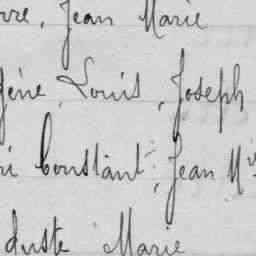 rre, Jean Marie
gène, Louis, Joseph
ri Constant, Jean M
duste Marie